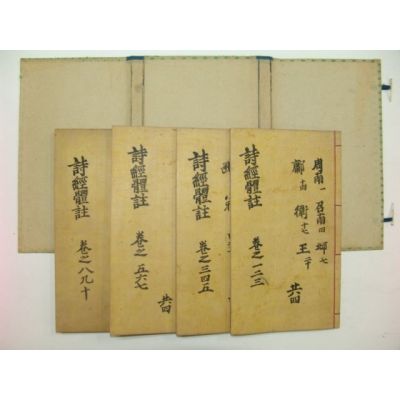 詩經體註
卷之八九十
詩經體註
卷之五六七
共四
詩經體註
卷之三四五
詩經體註
卷之一二三
周南一 召南四 邶七
鄘十四 衛十七 王二十
共四